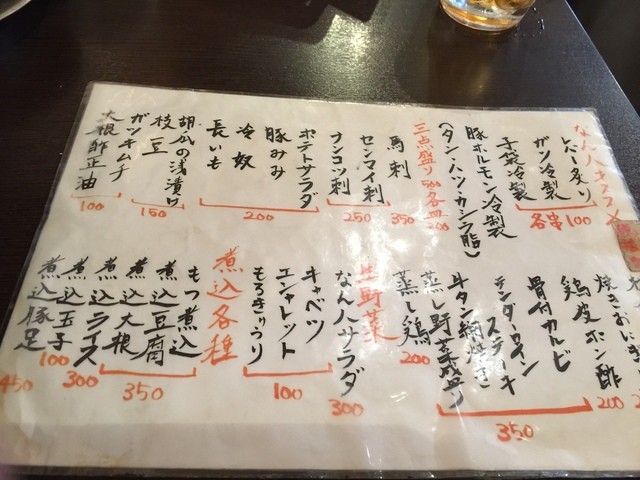 なん八オススメ
レバー炙り
ガツ冷製
子袋冷製
各串100
豚ホルモン冷製
(タン・ハツ・カシラ脂)
三点盛り500 各皿200
馬刺
350
センマイ刺
ナンコツ刺
250
ポテトサラダ
豚みみ
冷奴
長いも
200
胡瓜の浅漬け
枝豆
150
ガツキムチ
大根酢正油
100
焼きおにぎ
鶏皮ポン酢
200
骨付カルビ
テンダーロイン
ステーキ
牛タン網焼き
蒸し野菜盛り
350
蒸し鶏
200
生野菜
なん八サラダ
300
キャベツ
エシャレット
もろきゅうり
100
煮込各種
もつ煮込
煮込豆腐
煮込大根
350
煮込ライス
300
煮込玉子
100
煮込豚足
450